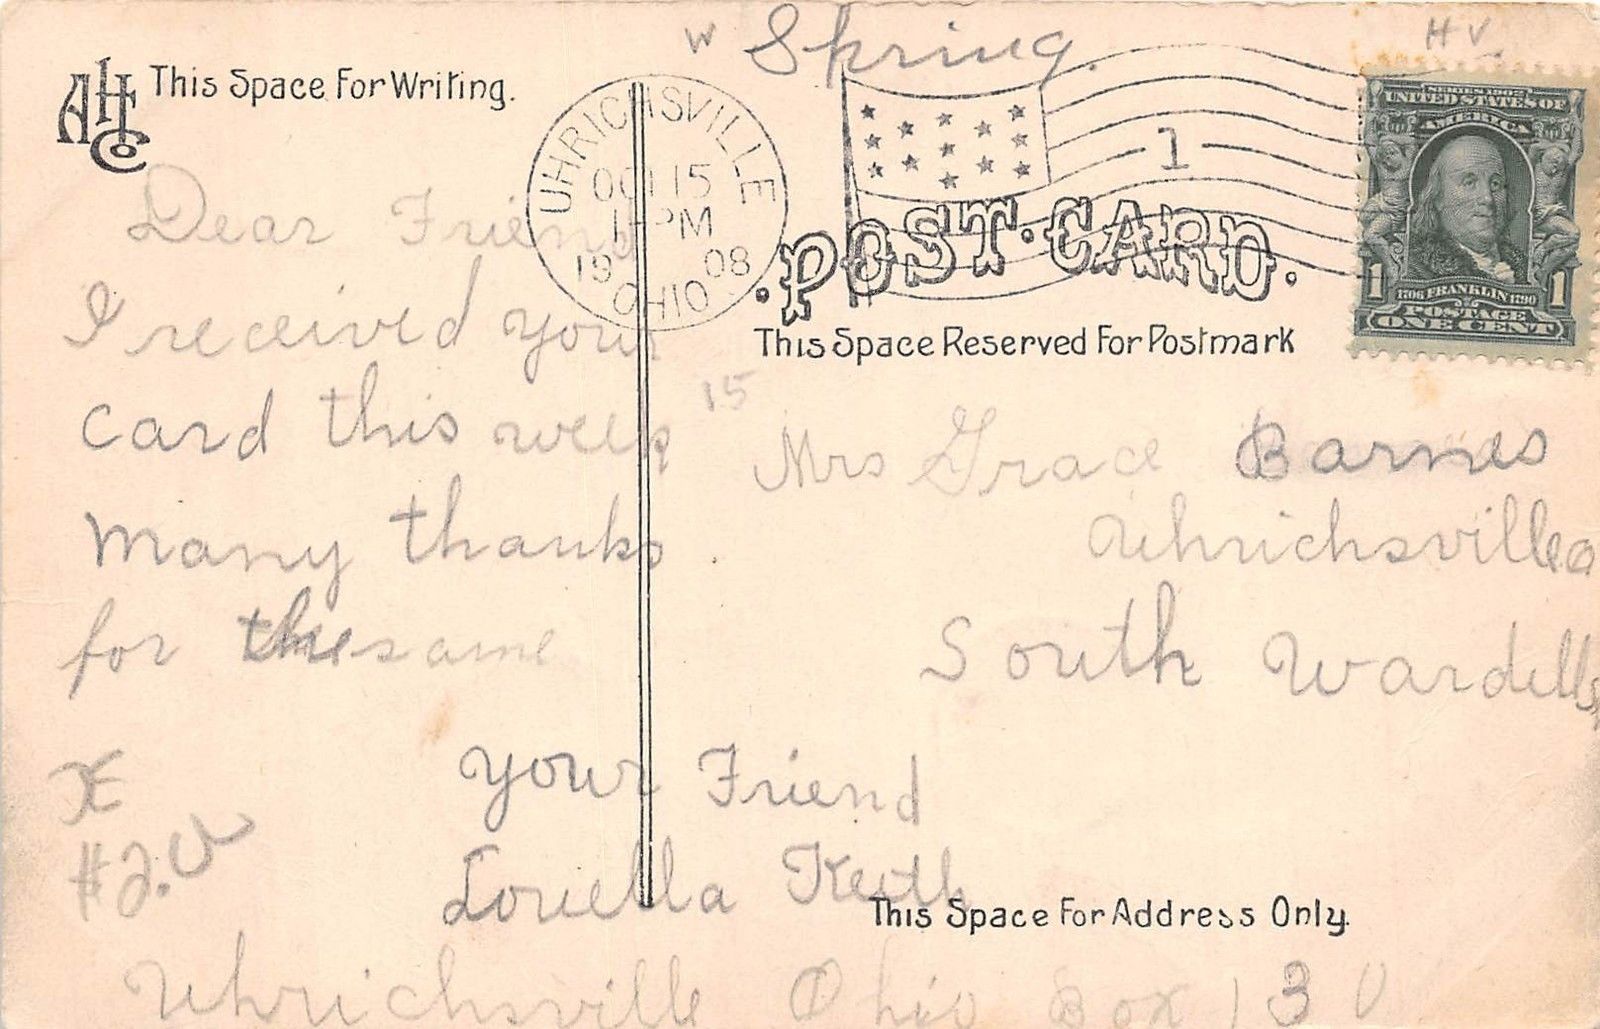 W Spring. H V.
AHCo This Space For Writing.
UHRICHSVILLE
OCT 15
1-PM
1908
OHIO
1
SERIES 1902
UNITED STATES OF
AMERICA
1 1706 FRANKLIN 1790 1
POSTAGE
ONE CENT
.POST.CARD.
This Space Reserved For Postmark
Dear Friend
I received your
card this week
many thanks
for the same
your Friend
Louella Keith
Uhrichsville Ohio Box 130
15
Mrs Grace Barnes
Uhrichsville O
South Wardell
This Space For Address Only.
#2.